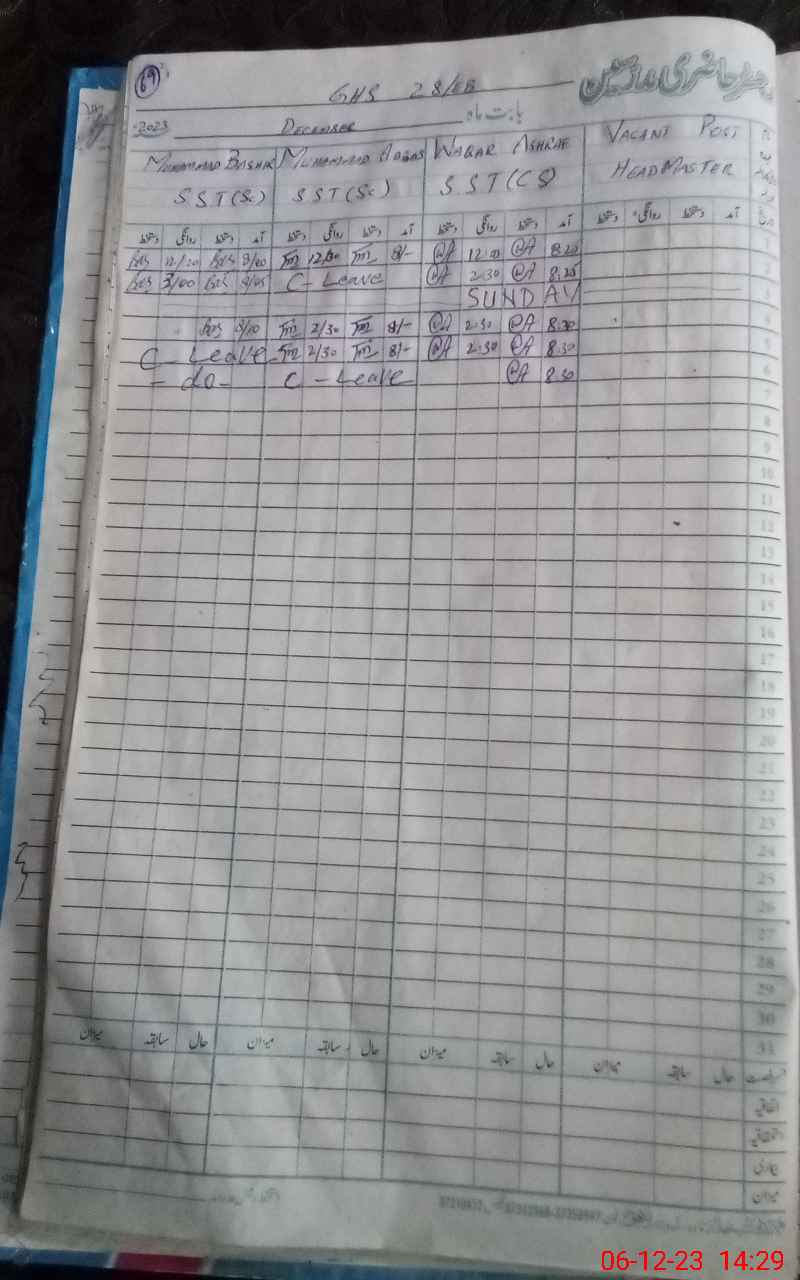 69
GHS 28/EB
رجسٹر حاضری مدارسین
2023 DECEMBER بابت ماہ
MUHAMMAD BASHAR MUHAMMAD ABBAS WAQAR ASHRAF VACANT POST
SST(Sc) SST(Sc) SST(CS) HEADMASTER
آمد دستخط روانگی دستخط آمد دستخط روانگی دستخط آمد دستخط روانگی دستخط آمد دستخط روانگی دستخط
12/20 8/00 12/30 8/- 12:00 8:20 1
3/00 8/05 C-Leave 2:30 8:25 2
SUNDAY 3
8/00 2/30 8/- 2:30 8:30 4
C-Leave 2/30 8/- 2:30 8:30 5
-do- C-Leave 8:30 6
7
8
9
10
11
12
13
14
15
16
17
18
19
20
21
22
23
24
25
26
27
28
29
30
31
رخصت حال سابقہ میزان حال سابقہ میزان حال سابقہ میزان حال سابقہ میزان
اتفاقیہ
استحقاقیہ
بیماری
میزان
06-12-23 14:29